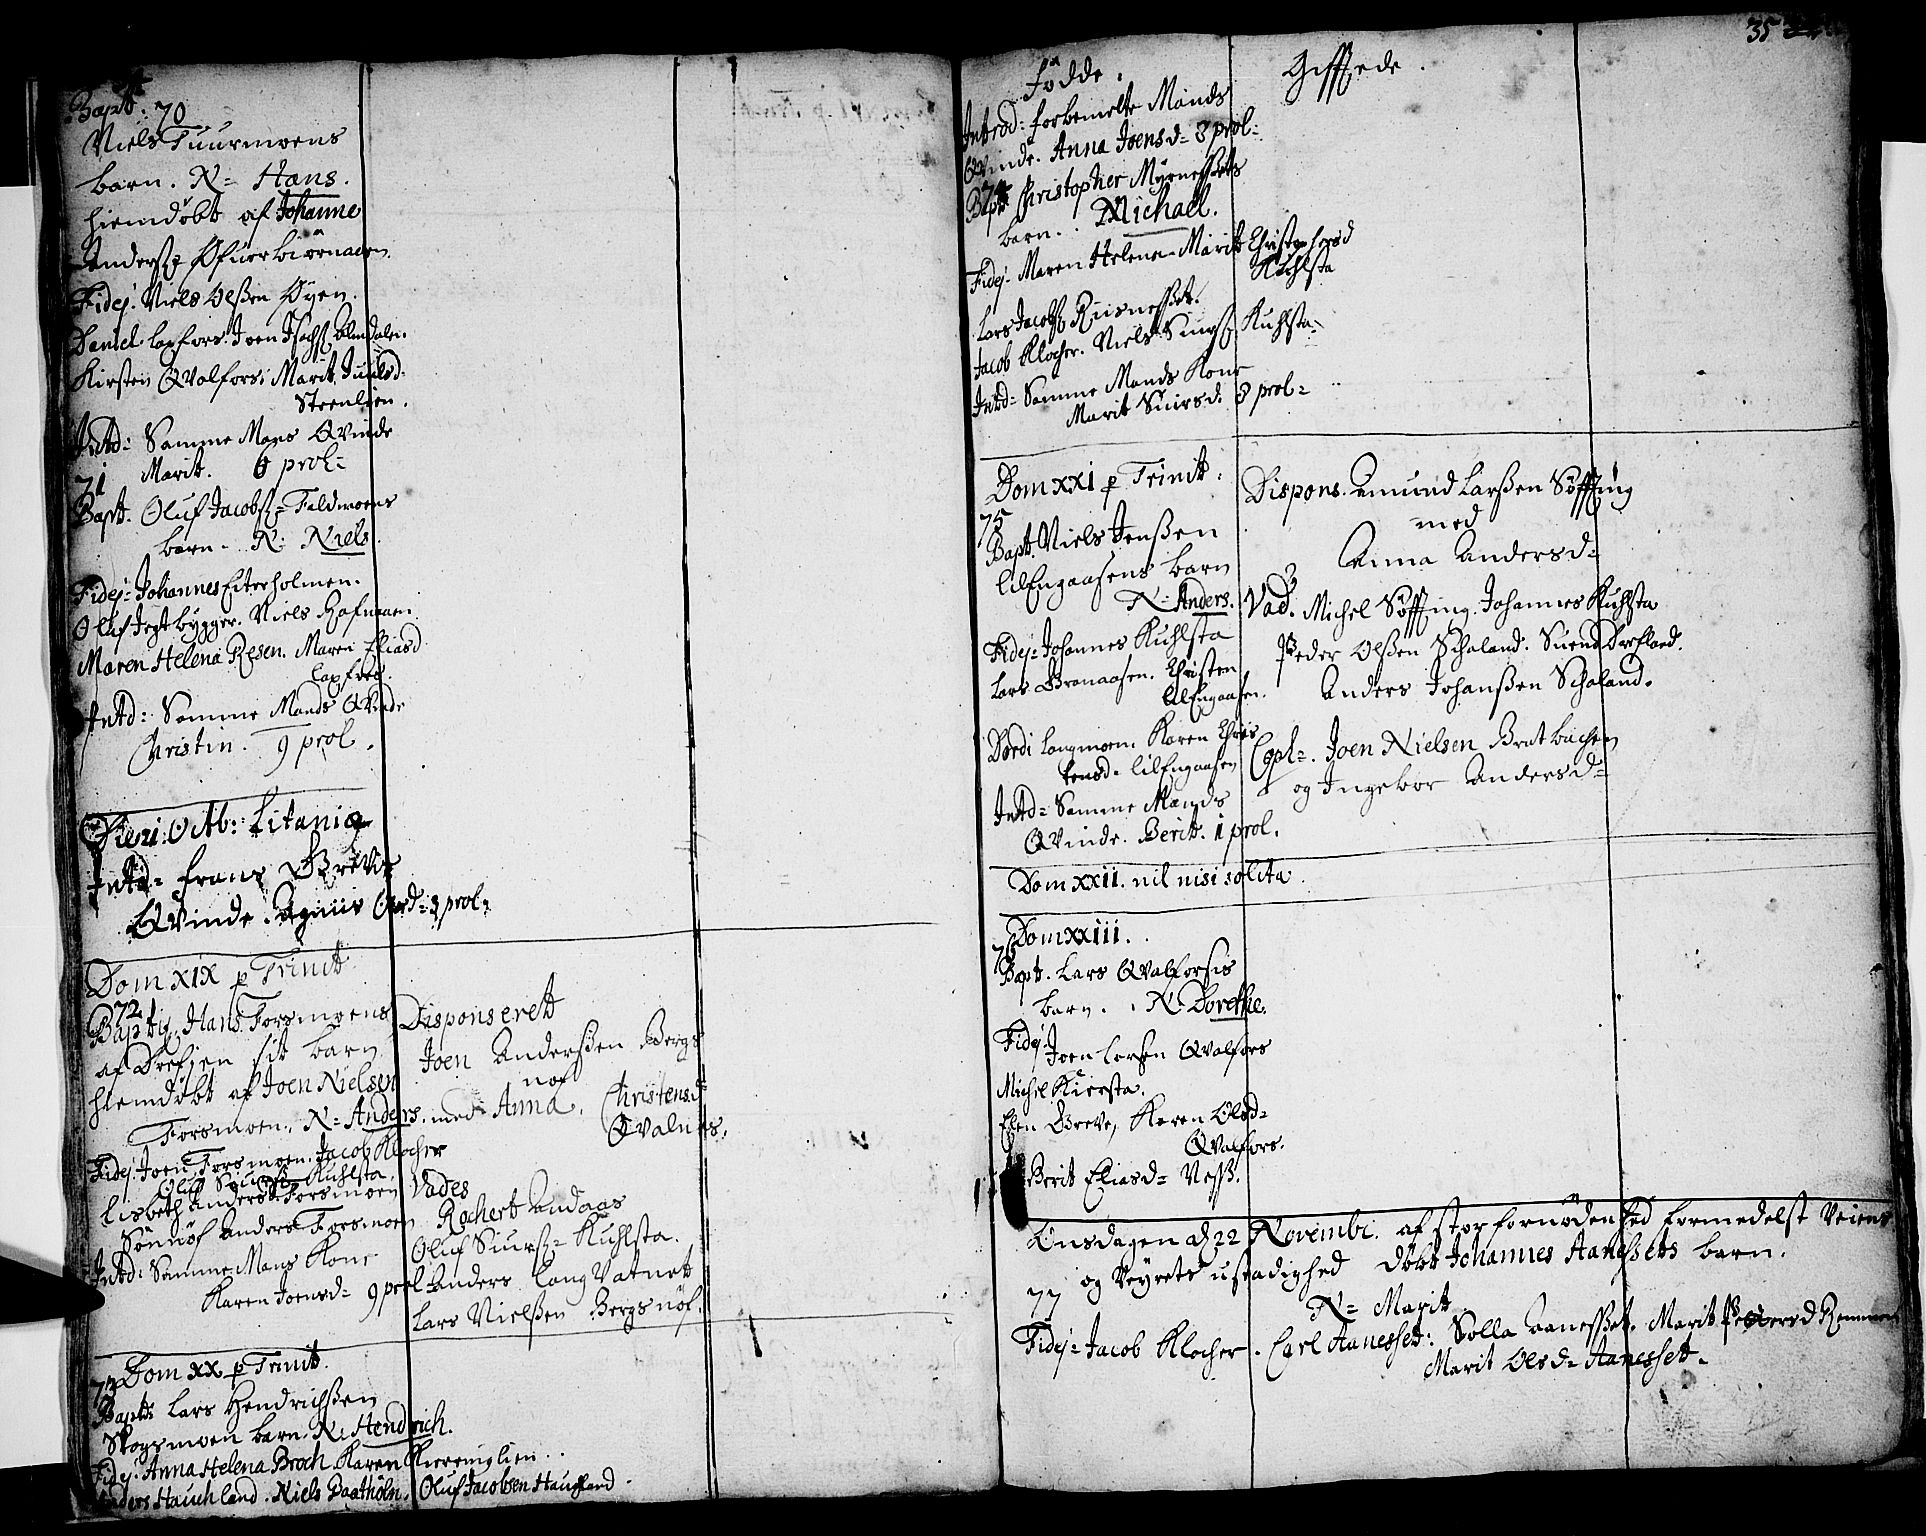 Bapt: 70
Niels Tuurmoens
barn. N= Hans.
hiemdøbt af Johanne
Anders
Fidej. Niels Olßen Øyen.
Daniel Laxfors. Joen
Kirsten Qvalfors. Marit Juulsd:
Steenlien.
Intd: Samme Mans Qvinde
Marit. 6 prol=
71
Bapt. Oluf Jacobs= Feldmoens
barn. N: Niels.
Fidej= Johannes Eiterholmen.
Oluf Jegtbygger. Niels Rafnaaen.
Maren Helena Resen. Maren Eliasd
Laxfors.
Intd: Samme Mands Qvinde
Christin. 9 prol.
Dieri: Octob: Litaniæ
Intd= Frans Greves
Qvinde Agniis Olsd= 3 prol.
Dom XIX p Trinit.
72
Baptz. Hans Forsmoens
af Drefjen sit barn
hiemdøbt af Joen Nielsen
Forsmoen. N= Anders.
Fidej. Joen Forsmoen. Jacob Klocher
Oluf Siursß Kuhlsta
Lisbeth Andersd. Forsmoen
Sønnøf Anders Forsmoen
Intd: Samme Mans Kone
Karen Joensd= 9 prol
Disponseret
Joen Anderßen Bergs
nøf
med Anna Christensd
Qvalnes.
Vades
Rochert Andaas
Oluf Siursß= Kuhlsta.
Anders Langvatnet
Lars Nielßen Bergsnøf.
Dom XX p Trinit.
73
Bapt: Lars Hendrichßen
Skogsmoen barn. N: Hendrich.
Fidej. Anna Helena Broch. Karen Kierringlien.
Anders Hauchland. Niels Baatholm. Oluf Jacobsen Haugland.
35
Fødde.
Giftede.
Introd: forbemelte Mands
Qvinde. Anna Joensd= 3 prol=
74
Bapt Christopher Myrnessets
barn. Michael.
Fidej. Maren Helena. Marit Christophersd
Kuhlsta
Lars Jacobsß Riisnesset.
Jacob Klocher. Niels Siursß Kuhlsta.
Intd= Samme Mands Kone
Marit Siursd. 3 prol=
Dom XXI p Trinit:
75
Bapt. Niels Jenßen
LilEngaasens barn
N= Anders.
Fidej= Johannes Kuhlsta
Lars Granaasen. Christen
LilEngaasen.
Dordi Langmoen. Karen Chris
tensd= LilEngaasen
Intd= Samme Mands
Qvinde. Berit. 1 prol.
Dispons. Amund Larßen Søfting
med
Anna Andersd=
Vad. Michel Søfting. Johannes Kuhlsta
Peder Olßen Schaland. Suend Drefland.
Anders Johanßen Schaland.
Copl=. Joen Nielsen Bratbachen
og Ingebor Andersd=
Dom XXII. nil nisi solita
Dom XXIII.
76
Bapt. Lars Qvalforsis
barn. N= Dorethe.
Fidej.
Joen Larsen Qvalfors
Michel Kiersta.
Elen Greve, Karen Olsd=
Qvalfors.
Berit Eliasd= Neß.
Onsdagen d 22 Novembr. af stor fornødenhed formedelst Veiens
og Veyrets ustadighed døbt Johannes Aanessets barn.
77
N= Marit
Fidej= Jacob Klocher. Carl Aanesset: Solla Aanesset. Marit Pedersd Remmen
Marit Olsd= Aanesset.